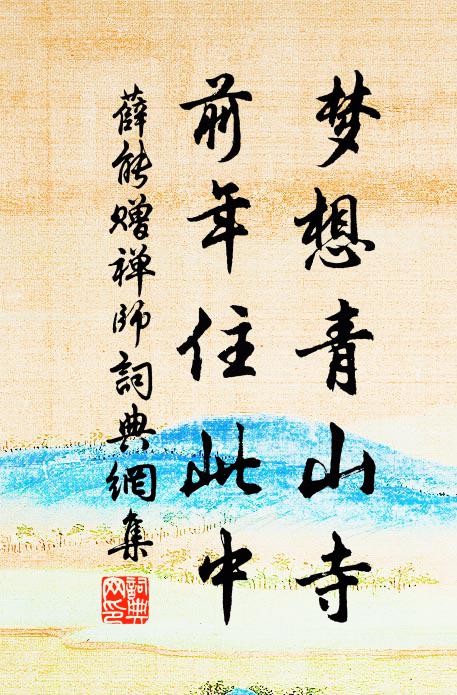 梦想青山寺
前年住此中
薛能赠禅师詞典網集
詞典